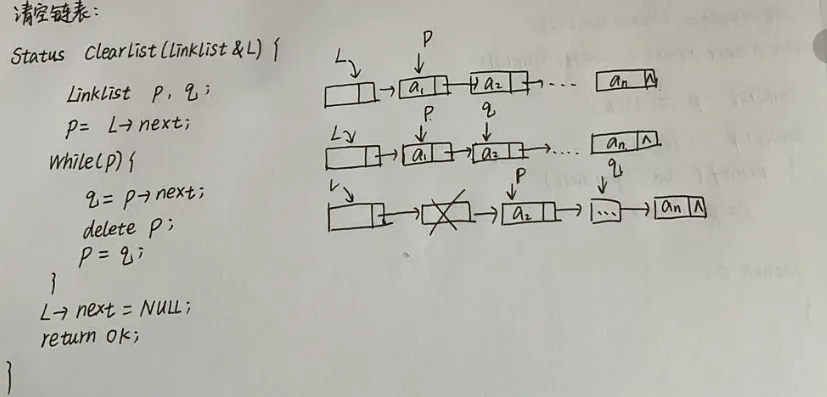 清空链表:
Status Clearlist(Linklist &L) {
Linklist p, q;
p= L→next;
while(p) {
q= p→next;
delete p;
p = q;
}
L→ next = NULL;
return ok;
}
L p
a₁ a₂ ... an ∧
L p q
a₁ a₂ .... an ∧
L p q
a₂ ... an ∧